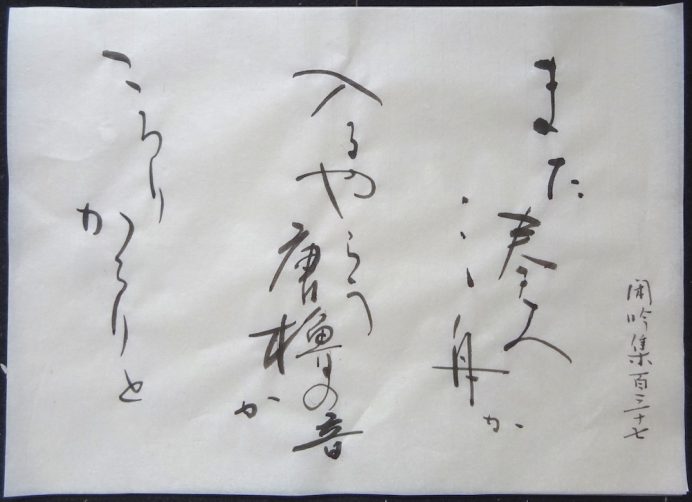 閑吟集百三十七
また湊へ舟か
入るやらう唐櫓の音か
ころりからりと